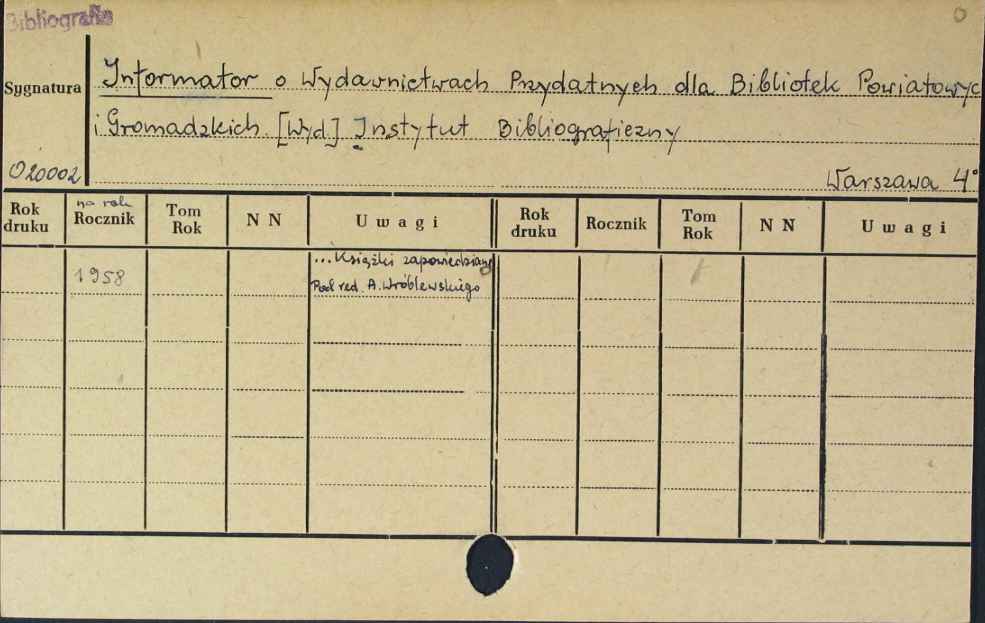 Bibliografia
0
Sygnatura
Informator o Wydawnictwach Przydatnych dla Bibliotek Powiatowyc
i Gromadzkich. [Wyd] Instytut Bibliograficzny
020002
Warszawa 4°
Rok druku
na rok
Rocznik
Tom Rok
N N
Uwagi
Rok druku
Rocznik
Tom Rok
N N
Uwagi
1958
...Książki zapowiedziane
Pod red. A. Wróblewskiego